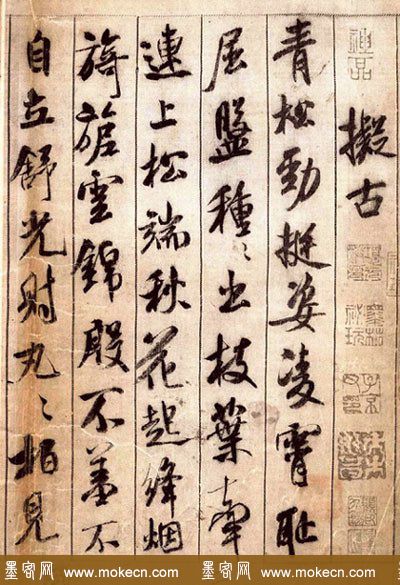 擬古
青松勁挺姿凌霄恥
屈盤種〻出枝葉牽
連上松端秋花起絳烟
旖旎雲錦殷不羞不
自立舒光射丸〻柏見
神品
墨客网 www.mokecn.com 墨客网 www.mokecn.com